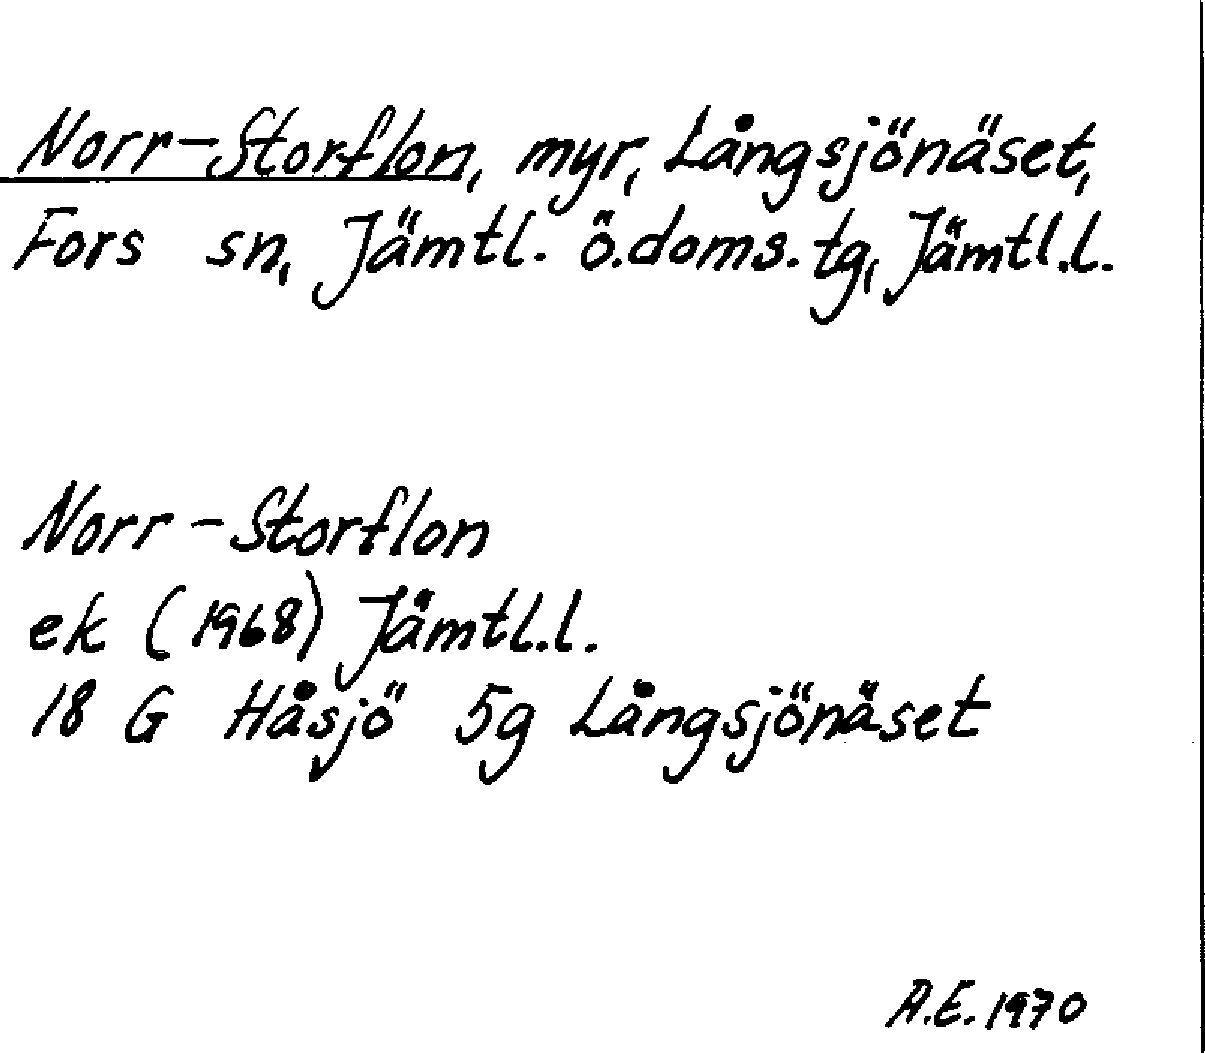 Norr-Storflon, myr, Långsjönäset,
Fors sn, Jämtl. ö.doms.tg, Jämtl.l.
Norr-Storflon
ek (1968) Jämtl.l.
18 G Håsjö 5g Långsjönäset
A.E. 1970